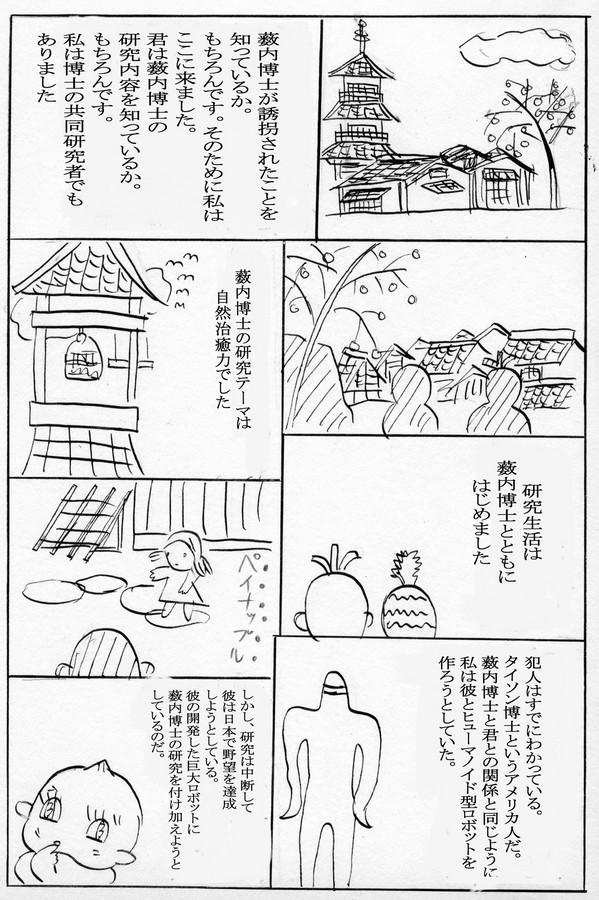 藪内博士が誘拐されたことを
知っているか。
もちろんです。そのために私は
ここに来ました。
君は藪内博士の
研究内容を知っているか。
もちろんです。
私は博士の共同研究者でも
ありました
藪内博士の研究テーマは
自然治癒力でした
研究生活は
藪内博士とともに
はじめました
ペイナップル
犯人はすでにわかっている。
タイソン博士というアメリカ人だ。
藪内博士と君との関係と同じように
私は彼とヒューマノイド型ロボットを
作ろうとしていた。
しかし、研究は中断して
彼は日本で野望を達成
しようとしている。
彼の開発した巨大ロボットに
藪内博士の研究を付け加えようと
しているのだ。